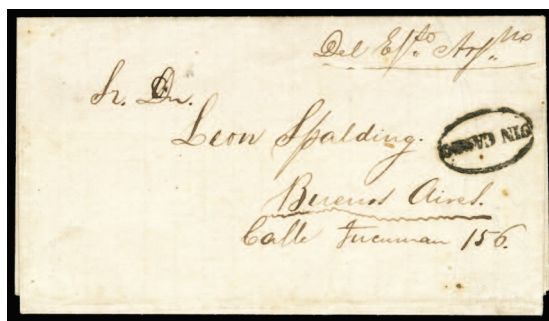 Del Ejto. Argno
Sr. Dn.
Leon Spalding.
SIN CARGO
Buenos Aires.
Calle Tucuman 156.